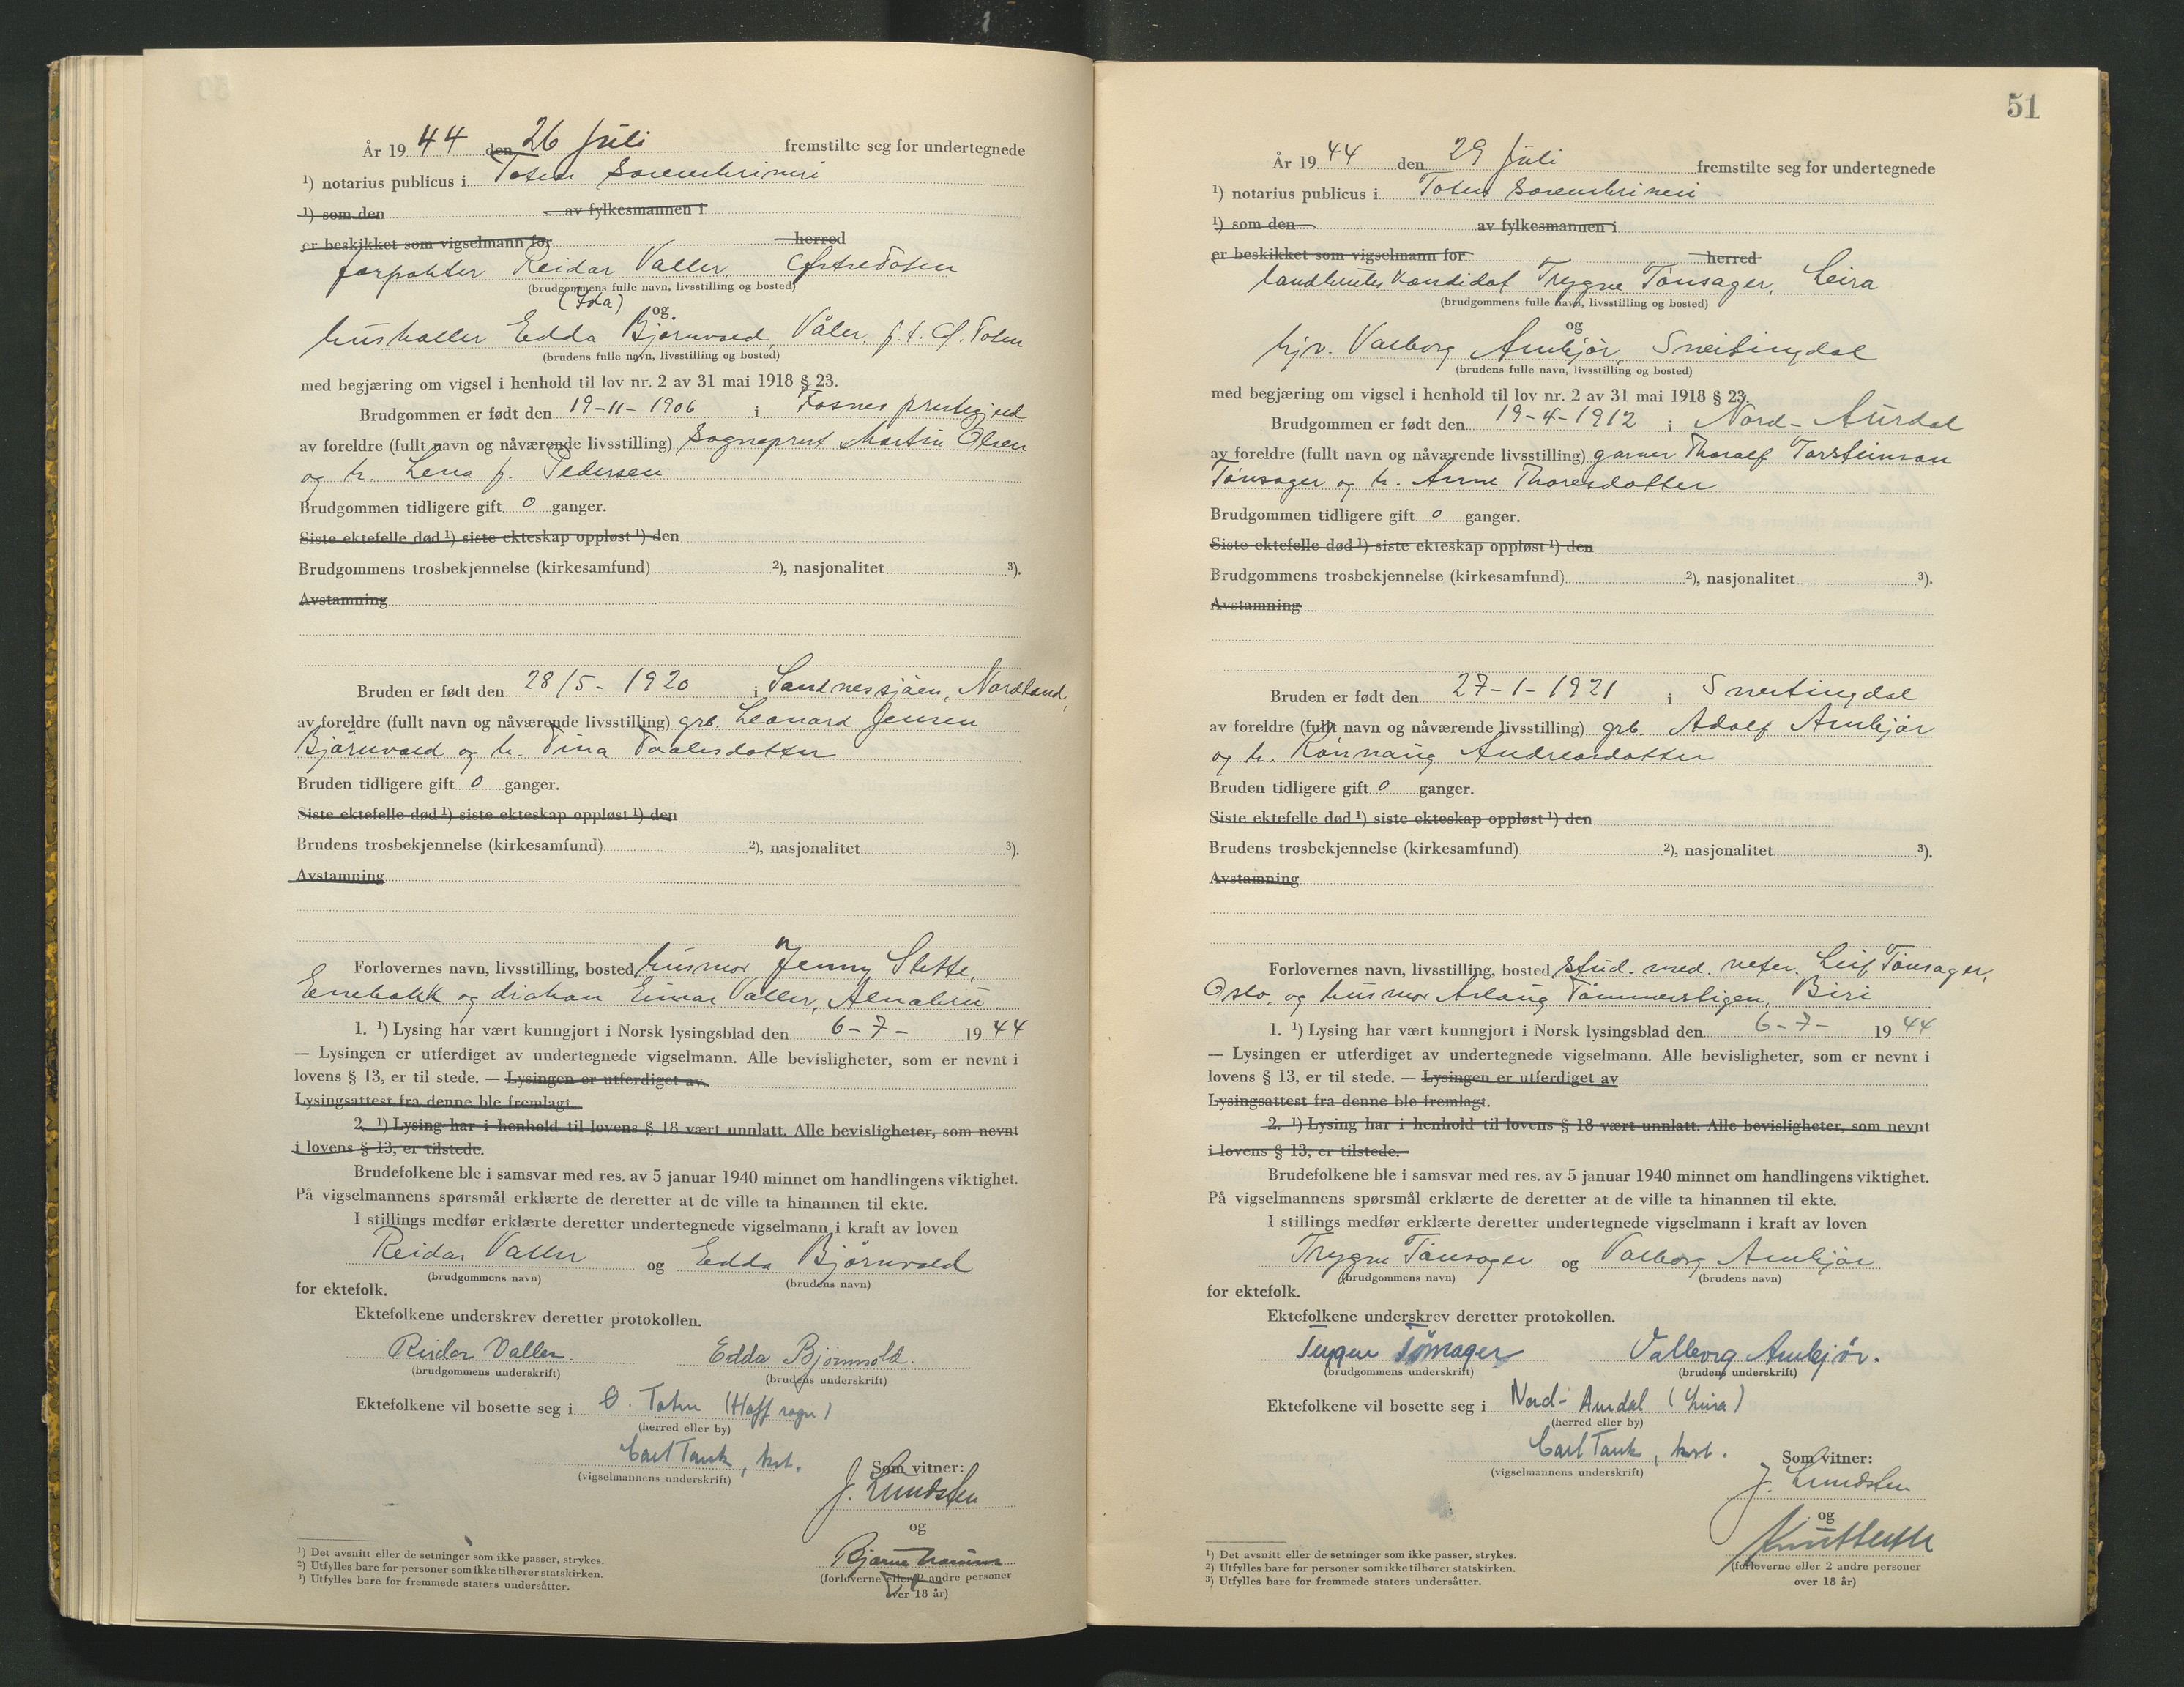 År 1944 den 26 Juli fremstilte seg for undertegnede
¹) notarius publicus i Toten Sorenskriveri
¹) som den av fylkesmannen i
er beskikket som vigselmann for herred
forpakter Reidar Valler, Østre Toten
(brudgommens fulle navn, livsstilling og bosted)
(Ida) og
husholder Edda Bjørnvold, Våler. f.t. Ø. Toten
(brudens fulle navn, livsstilling og bosted)
med begjæring om vigsel i henhold til lov nr. 2 av 31 mai 1918 § 23.
Brudgommen er født den 19-11-1906 i Fosnes prestegjeld
av foreldre (fullt navn og nåværende livsstilling) Sogneprest Martin Olsen
og h. Lena f. Pedersen
Brudgommen tidligere gift 0 ganger.
Siste ektefelle død ¹) siste ekteskap oppløst ¹) den
Brudgommens trosbekjennelse (kirkesamfund) ²), nasjonalitet ³).
Avstamning
Bruden er født den 28/5- 1920 i Sandnessjøen, Nordland,
av foreldre (fullt navn og nåværende livsstilling) grb. Leonard Jensen
Bjørnvold og h. Tina Paalesdotter
Bruden tidligere gift 0 ganger.
Siste ektefelle død ¹) siste ekteskap oppløst ¹) den
Brudens trosbekjennelse (kirkesamfund) ²), nasjonalitet ³).
Avstamning
Forlovernes navn, livsstilling, bosted husmor Jenny Slette,
Enebakk og diakon Einar Valler, Alnabru.
1. ¹) Lysing har vært kunngjort i Norsk lysingsblad den 6-7- 1944
— Lysingen er utferdiget av undertegnede vigselmann. Alle bevisligheter, som er nevnt i
lovens § 13, er til stede. — Lysingen er utferdiget av
Lysingsattest fra denne ble fremlagt.
2. ¹) Lysing har i henhold til lovens § 18 vært unnlatt. Alle bevisligheter, som nevnt
i lovens § 13, er tilstede.
Brudefolkene ble i samsvar med res. av 5 januar 1940 minnet om handlingens viktighet.
På vigselmannens spørsmål erklærte de deretter at de ville ta hinannen til ekte.
I stillings medfør erklærte deretter undertegnede vigselmann i kraft av loven
Reidar Valler og Edda Bjørnvold
(brudgommens navn) (brudens navn)
for ektefolk.
Ektefolkene underskrev deretter protokollen.
Reidar Valler. Edda Bjørnvold.
(brudgommens underskrift) (brudens underskrift)
Ektefolkene vil bosette seg i Ø. Toten (Hoff sogn)
(herred eller by)
Carl Tank, kst.
(vigselmannens underskrift)
Som vitner:
J. Lundsten
og
Bjarne
(forloverne eller 2 andre personer
over 18 år)
¹) Det avsnitt eller de setninger som ikke passer, strykes.
²) Utfylles bare for personer som ikke tilhører statskirken.
³) Utfylles bare for fremmede staters undersåtter.
51
År 1944 den 29 Juli fremstilte seg for undertegnede
¹) notarius publicus i Toten Sorenskriveri
¹) som den av fylkesmannen i
er beskikket som vigselmann for herred
landbrukskandidat Trygve Tønsager, Leira
(brudgommens fulle navn, livsstilling og bosted)
og
hjv. Valborg Amkjør, Sneitingdal
(brudens fulle navn, livsstilling og bosted)
med begjæring om vigsel i henhold til lov nr. 2 av 31 mai 1918 § 23.
Brudgommen er født den 19-4-1912 i Nord-Aurdal
av foreldre (fullt navn og nåværende livsstilling) garver Thoralf Torsteinson
Tønsager og h. Anne Thoresdotter
Brudgommen tidligere gift 0 ganger.
Siste ektefelle død ¹) siste ekteskap oppløst ¹) den
Brudgommens trosbekjennelse (kirkesamfund) ²), nasjonalitet ³).
Avstamning
Bruden er født den 27-1-1921 i Snertingdal
av foreldre (fullt navn og nåværende livsstilling) grb. Adolf Amkjør
og h. Rønnaug Andreasdotter
Bruden tidligere gift 0 ganger.
Siste ektefelle død ¹) siste ekteskap oppløst ¹) den
Brudens trosbekjennelse (kirkesamfund) ²), nasjonalitet ³).
Avstamning
Forlovernes navn, livsstilling, bosted stud. med. veter. Leif Tønsager,
Oslo, og husmor Aslaug Tømmerstigen, Biri
1. ¹) Lysing har vært kunngjort i Norsk lysingsblad den 6-7- 1944
— Lysingen er utferdiget av undertegnede vigselmann. Alle bevisligheter, som er nevnt i
lovens § 13, er til stede. — Lysingen er utferdiget av
Lysingsattest fra denne ble fremlagt.
2. ¹) Lysing har i henhold til lovens § 18 vært unnlatt. Alle bevisligheter, som nevnt
i lovens § 13, er tilstede.
Brudefolkene ble i samsvar med res. av 5 januar 1940 minnet om handlingens viktighet.
På vigselmannens spørsmål erklærte de deretter at de ville ta hinannen til ekte.
I stillings medfør erklærte deretter undertegnede vigselmann i kraft av loven
Trygve Tønsager og Valborg Amkjør
(brudgommens navn) (brudens navn)
for ektefolk.
Ektefolkene underskrev deretter protokollen.
Trygve Tønsager Valborg Amkjør.
(brudgommens underskrift) (brudens underskrift)
Ektefolkene vil bosette seg i Nord-Aurdal (Leira)
(herred eller by)
Carl Tank, kst.
(vigselmannens underskrift)
Som vitner:
J. Lundsten
og
(forloverne eller 2 andre personer
over 18 år)
¹) Det avsnitt eller de setninger som ikke passer, strykes.
²) Utfylles bare for personer som ikke tilhører statskirken.
³) Utfylles bare for fremmede staters undersåtter.